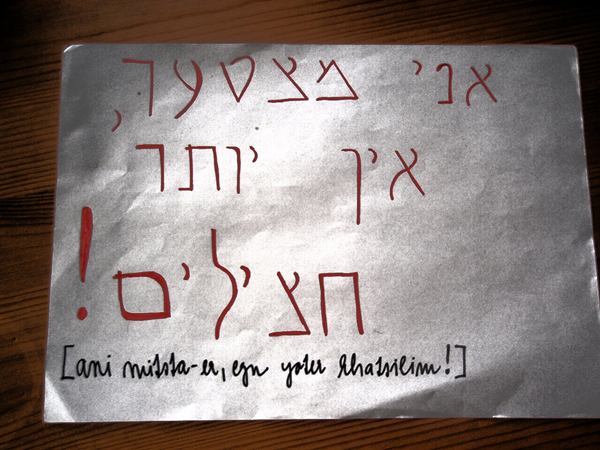 אני מצטער,
אין יותר
חצילים!
[ani mitsta-er, eyn yoter khatsilim!]